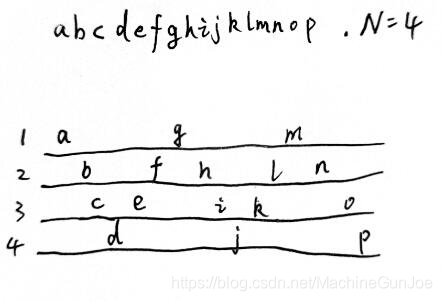 abcdefghijklmnop . N=4
1 a g m
2 b f h l n
3 c e i k o
4 d j p
https://blog.csdn.net/MachineGunJoe